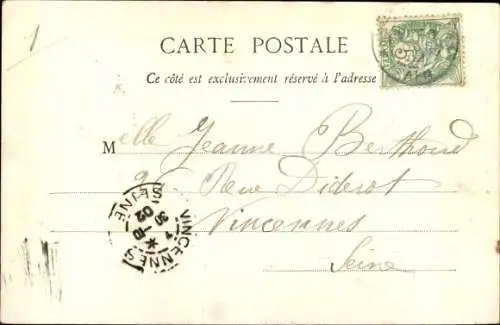 1
CARTE POSTALE
Ce côté est exclusivement réservé à l'adresse
Melle Jeanne Berthoud
Rue Diderot
Vincennes
Seine
VINCENNES
SEINE
30
02